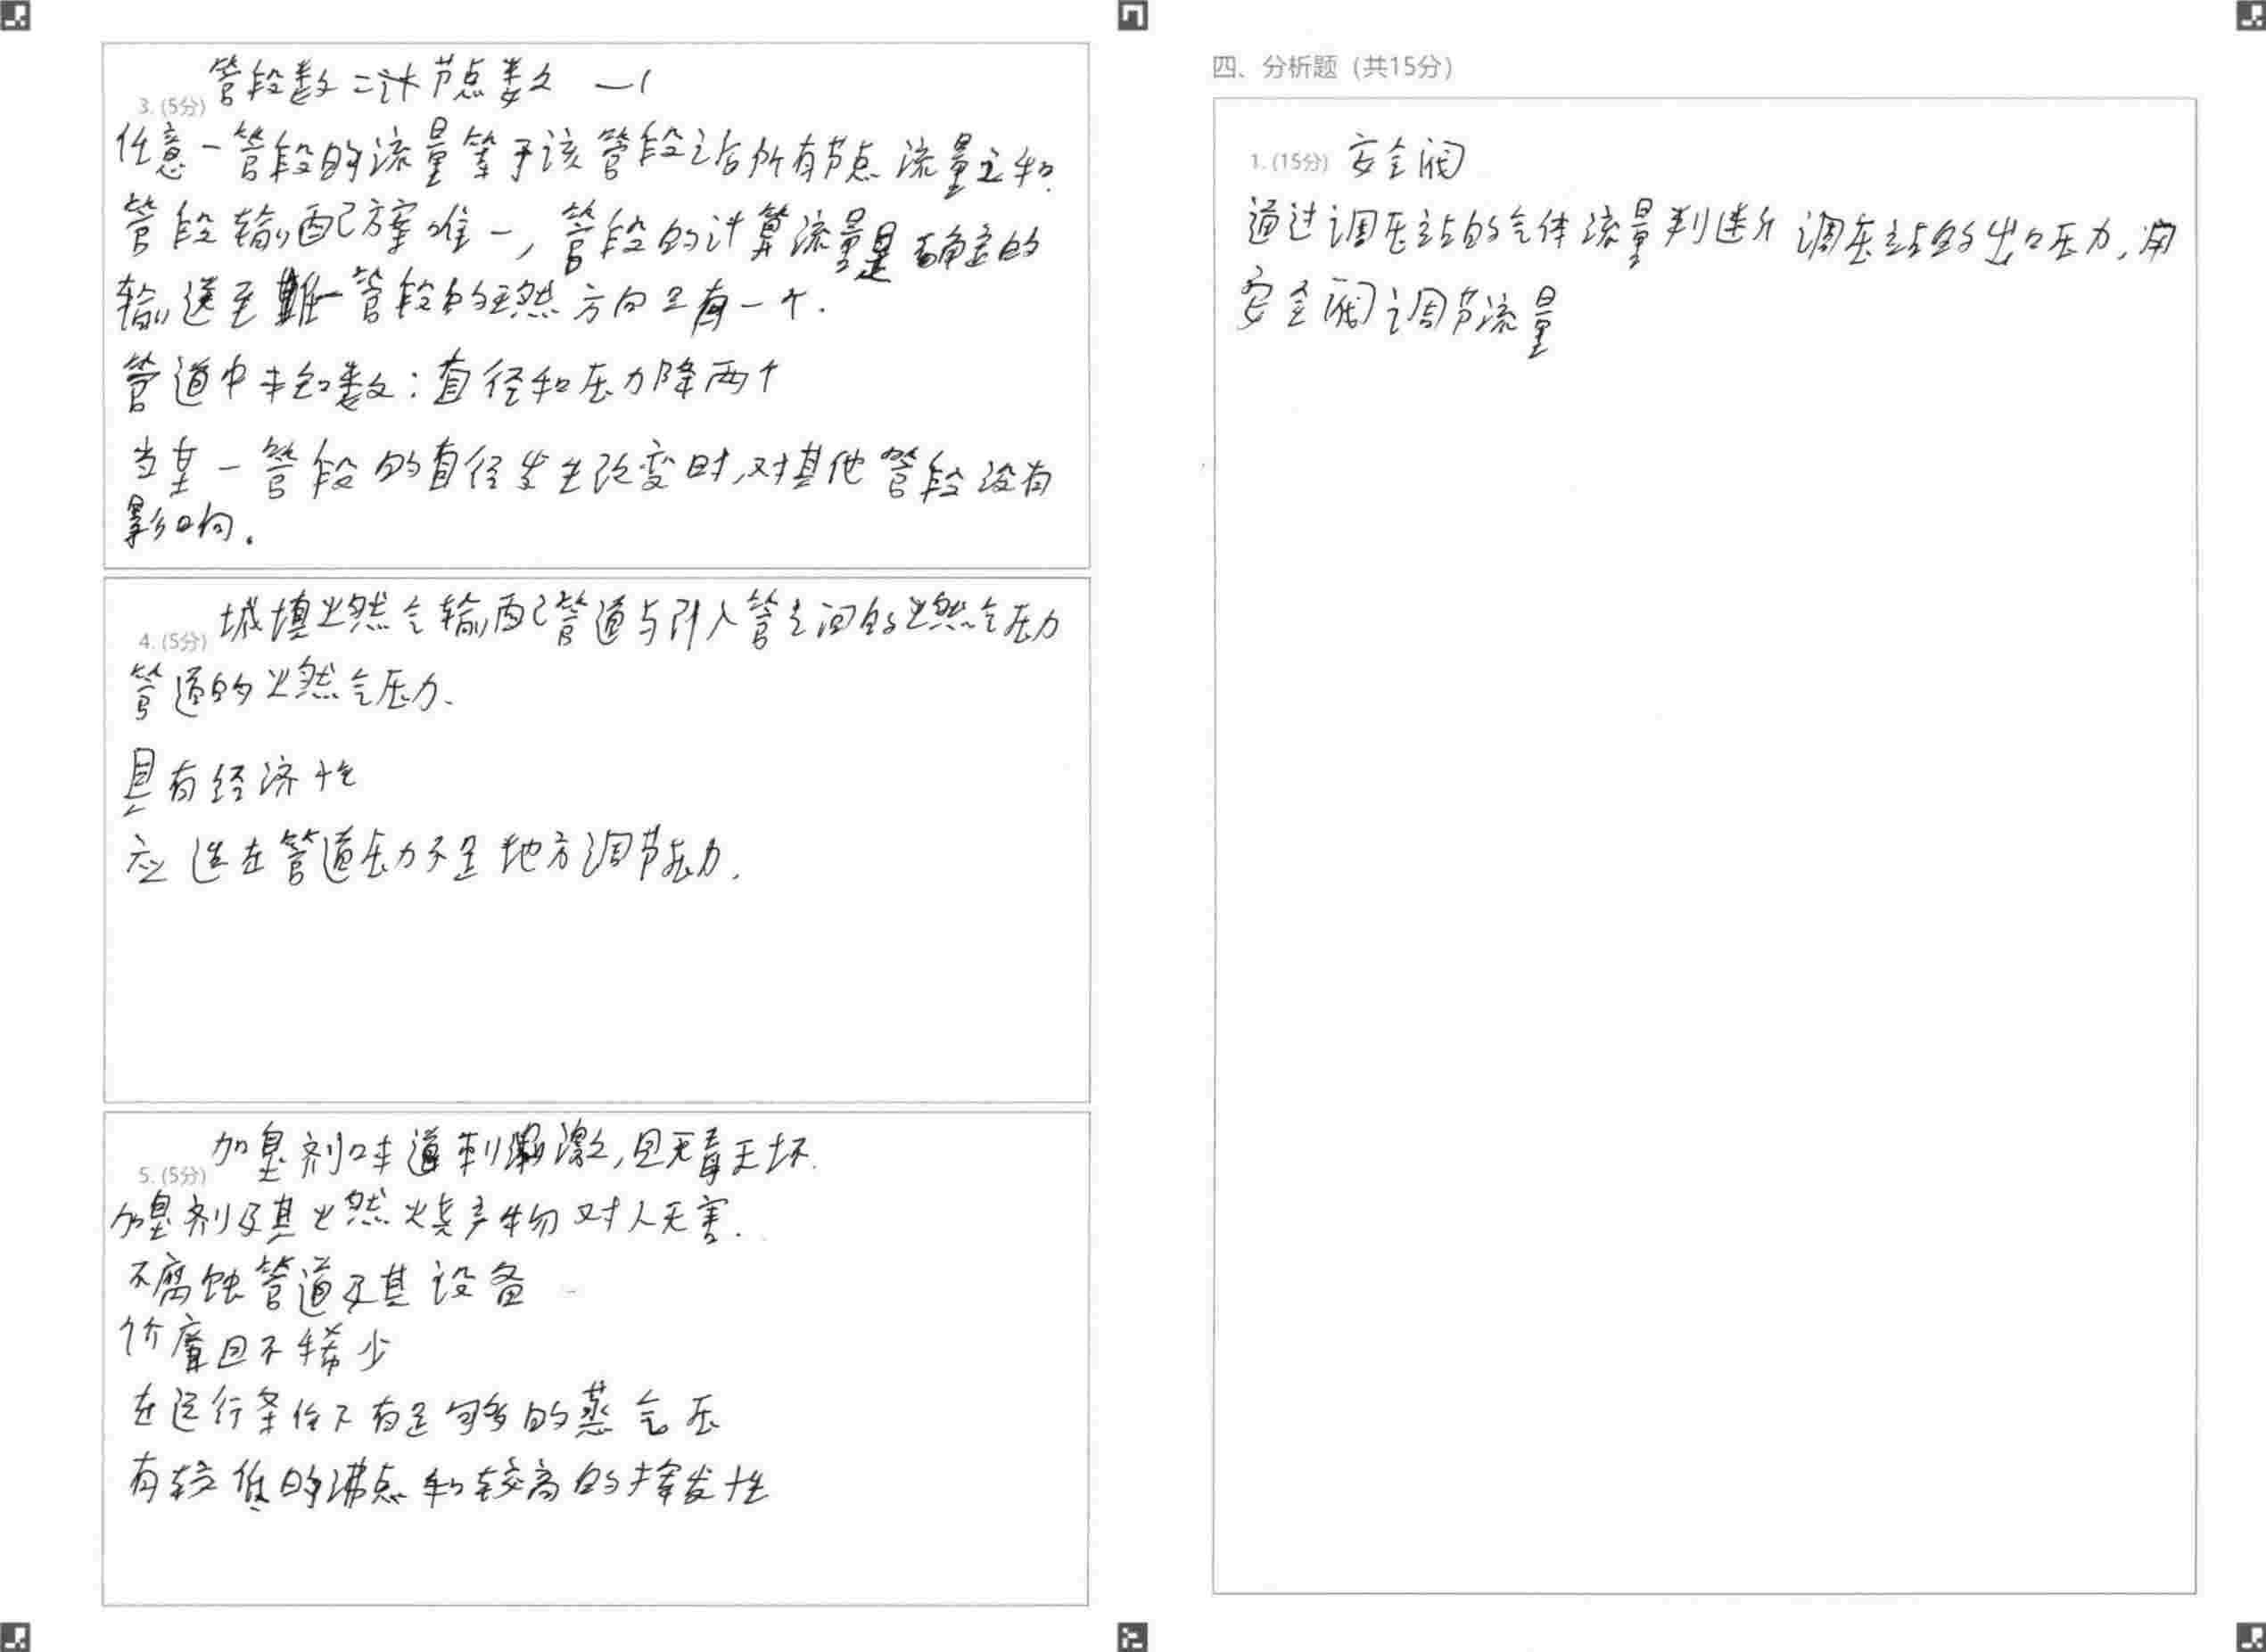 管段数=计节点数 —1
3. (5分)
任意一管段的流量等于该管段之后所有节点流量之和.
管段输配方案唯一,管段的计算流量是确定的
输送至一管段的燃方向只有一个.
管道中未知数:直径和压力降两个
当某一管段的直径发生改变时,对其他管段没有
影响.
城填燃气输配管道与引入管之间的燃气压力
4. (5分)
管道的燃气压力.
具有经济性
应选在管道压力不足地方调节压力.
加臭剂味道刺激,且无毒无坏.
5. (5分)
加臭剂及其燃烧产物对人无害.
不腐蚀管道及其设备
价廉且不稀少
在运行条件下有足够的蒸气压
有较低的沸点和较高的挥发性
四、分析题 (共15分)
1. (15分) 安全阀
通过调压站的气体流量判断调压站的出口压力,用
安全阀调节流量